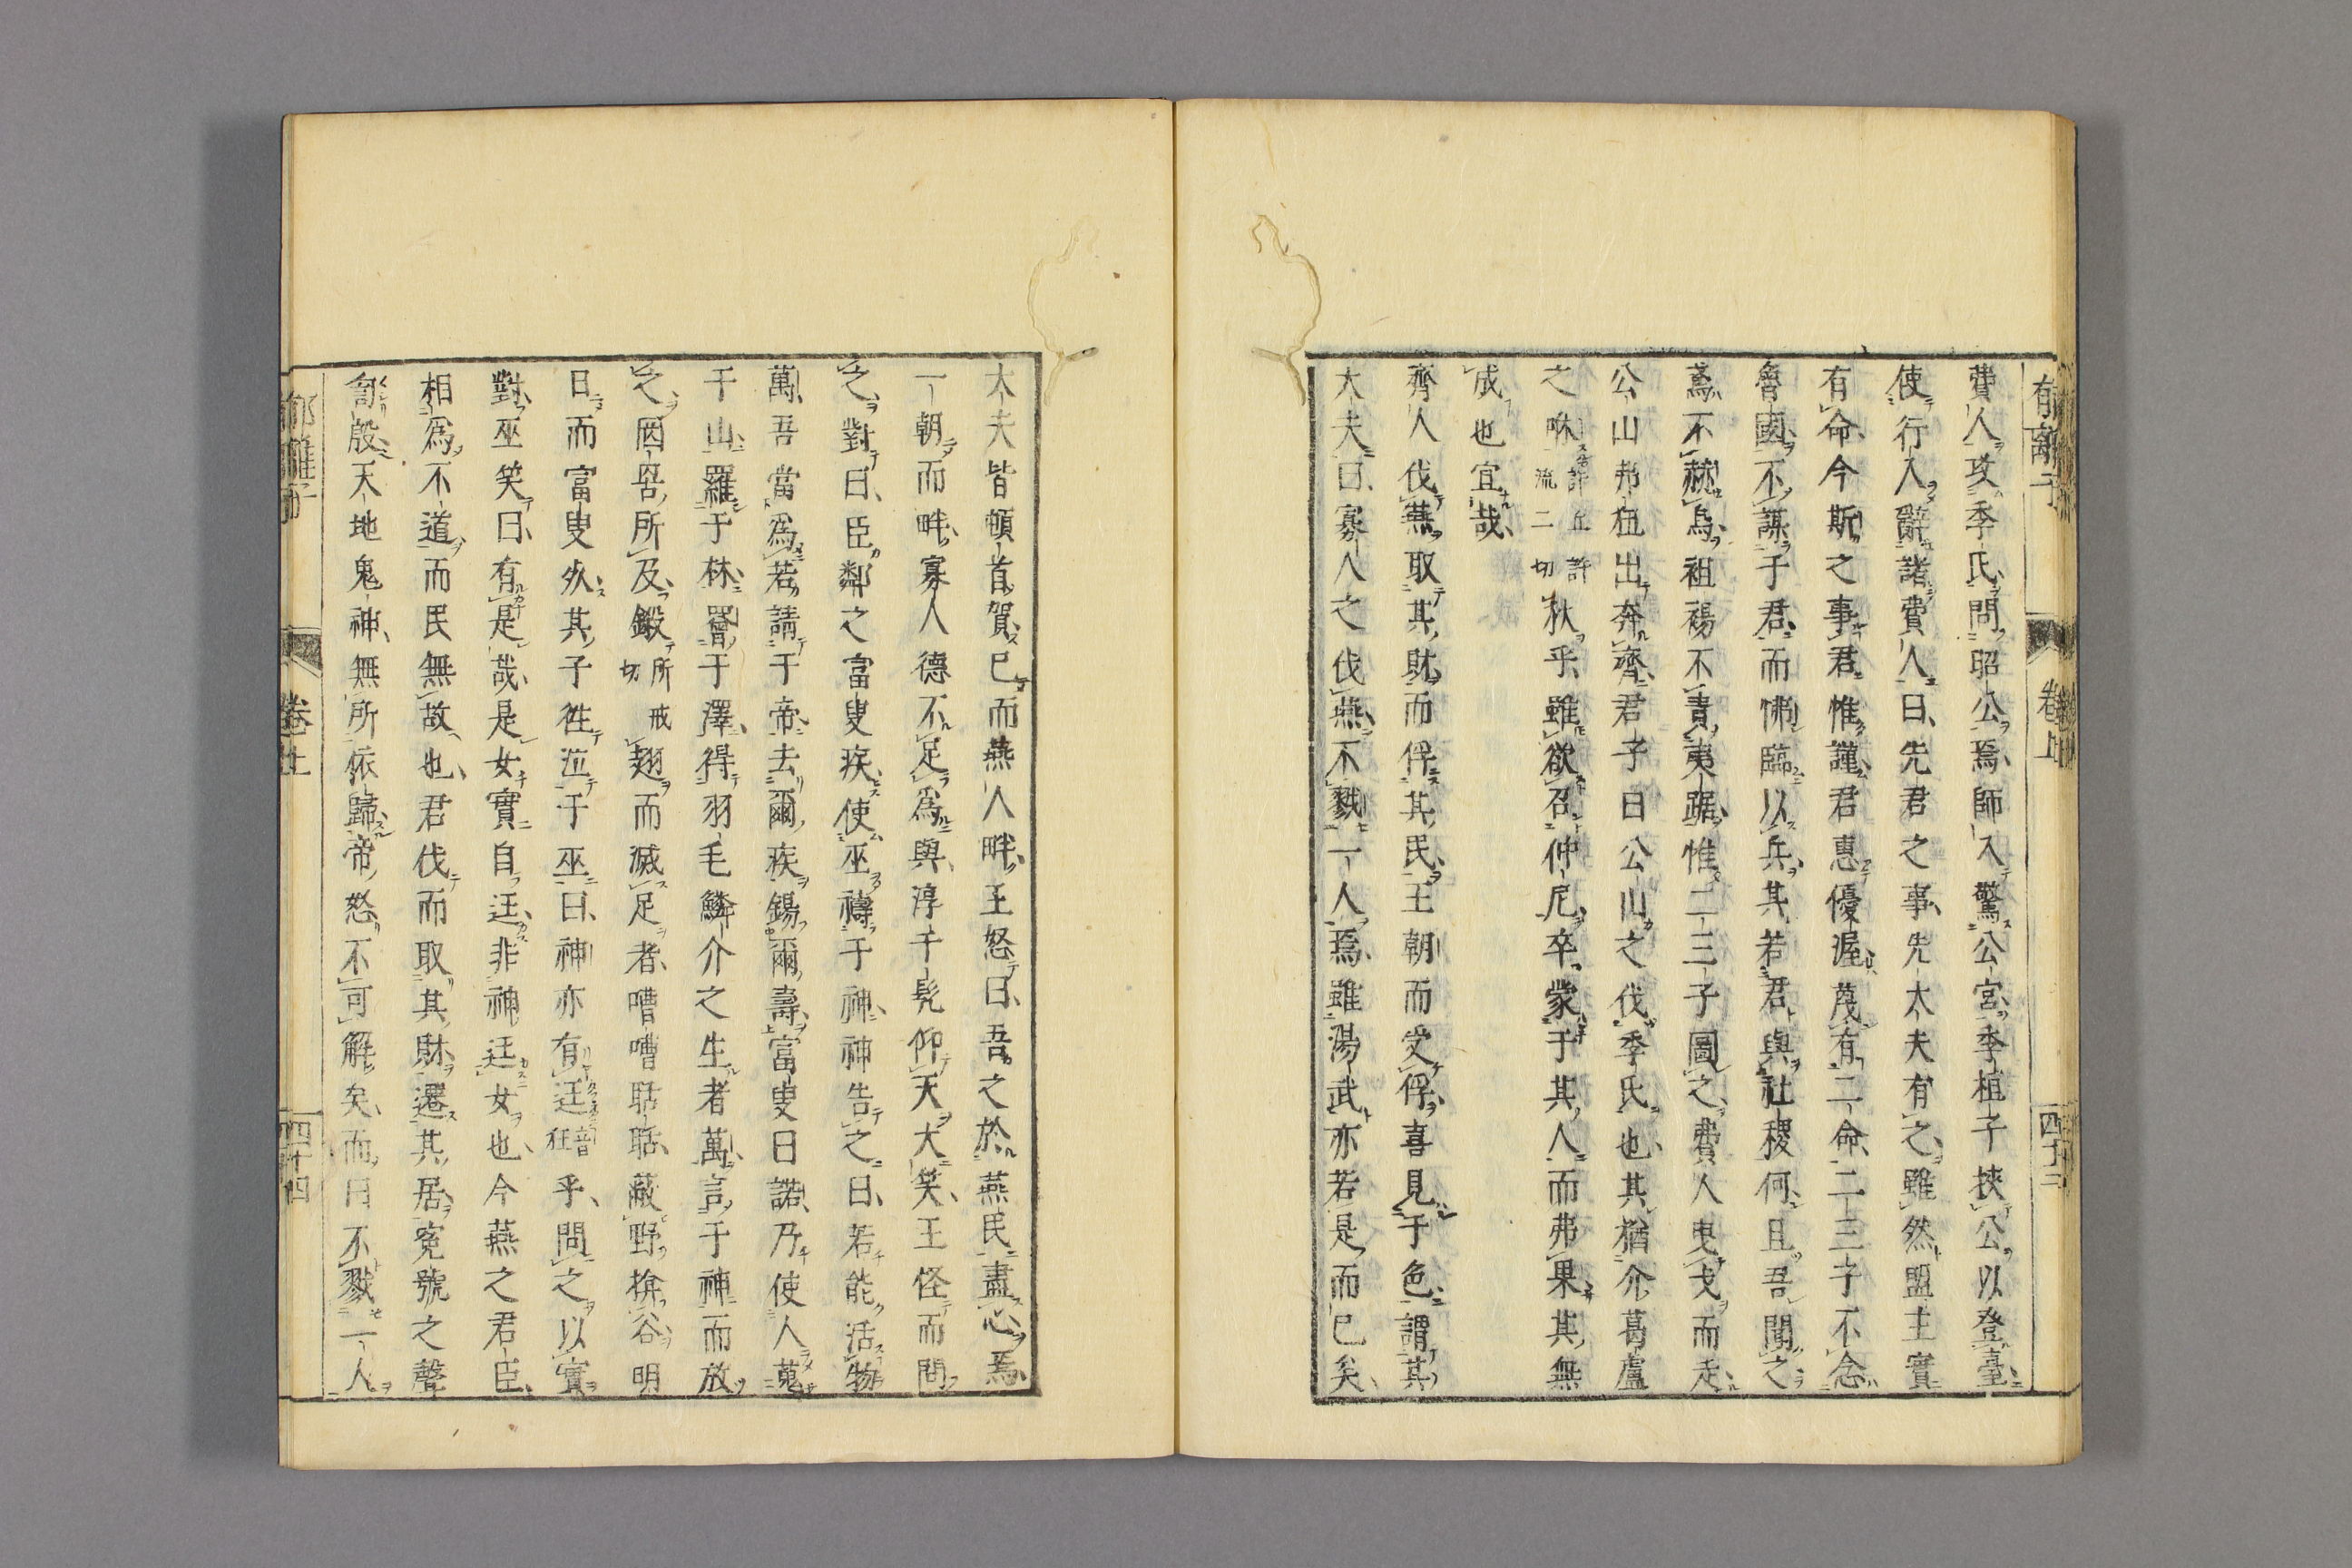 郁離子 卷上 四十三
費人攻季氏問昭公焉師入驚公宮季桓子挾公以登臺
使行人辭諸費人曰先君之事先大夫有之雖然盟主實
有命今斯之事君惟謹君惠優渥蔑有二命二三子不念
魯國不謀于君而怫臨以兵其若君與社稷何且吾聞之
鳶不赫烏袒裼不責夷踞惟二三子圖之費人曳戈而走
公山弗杻出奔齊君子曰公山之伐季氏也其猶介葛盧
之咻許丘許流二切狄乎雖欲召仲尼卒蒙于其人而弗果其無
成也宜哉
齊人伐燕取其財而俘其民王朝而受俘喜見于色謂其
大夫曰寡人之伐燕不戮一人焉雖湯武亦若是而已矣
大夫皆頓首賀已而燕人畔王怒曰吾之於燕民盡心焉
一朝而畔寡人德不足爲與淳于髡仰天大笑王怪而問
之對曰臣鄰之富叟疾使巫禱于神神告之曰若能活物
萬吾當爲若請于帝去爾疾錫爾壽富叟曰諾乃使人蒐
于山羅于林罾于澤得羽毛鱗介之生者萬言于神而放
之因罟所及鎩所戒切翅而滅足者嘈嘈聒聒蔽野揜谷明
日而富叟死其子徃泣于巫曰神亦有迋音狂乎問之以實
對巫笑曰有是哉是女實自迋非神迋女也今燕之君臣
相爲不道而民無故也君伐而取其財遷其居冤號之聲
訇殷天地鬼神無所依歸帝怒不可解矣而曰不戮一人
郁離子 卷上 四十四